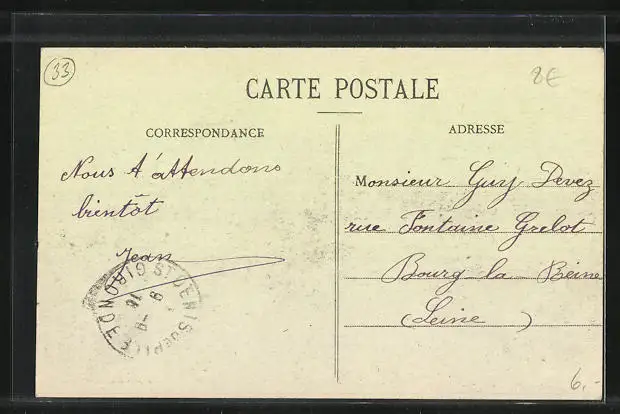 33
8€
CARTE POSTALE
CORRESPONDANCE
ADRESSE
Nous t'attendons
bientôt
Jean
Monsieur Guy Devez
rue Fontaine Grelot
Bourg la Reine
(Seine)
ST DENIS DE PILE GIRONDE
6,-